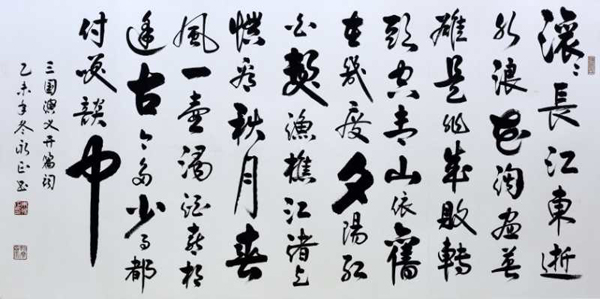 滾々長江東逝
水浪花淘盡英
雄是非成敗轉
頭空青山依舊
在幾度夕陽紅
白髮漁樵江渚上
慣看秋月春
風一壺濁酒喜相
逢古今多少事都
付笑談中
三国演义开篇词
乙未年冬永正书